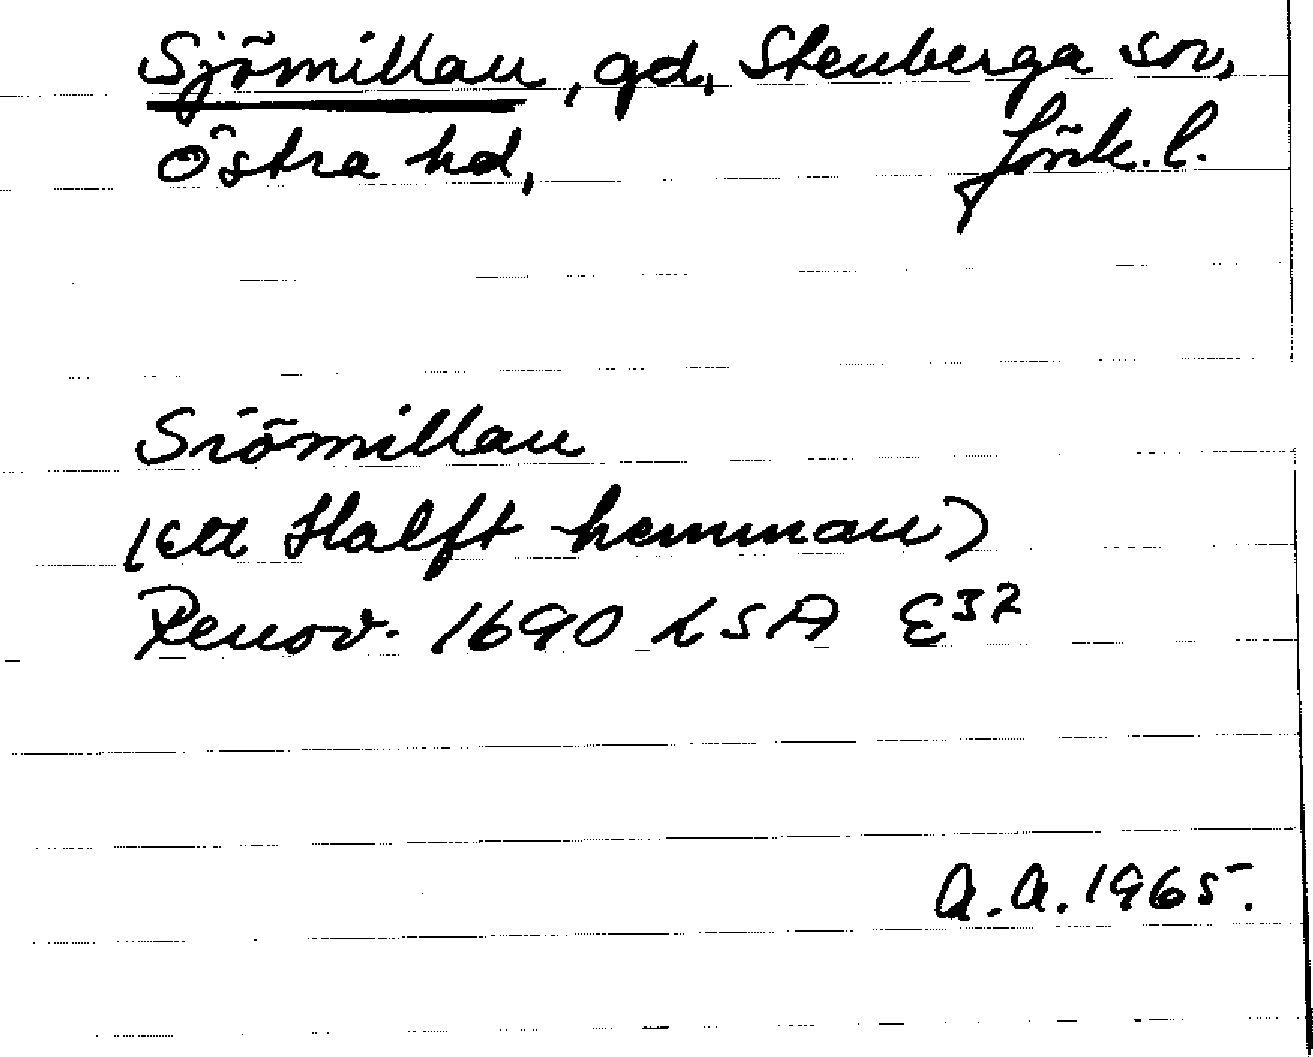 Sjömillan, gd, Stenberga sn,
Östra hd, Jönk. l.
Siömillan
(Ett Halft hemman)
Renov. 1690 LSA E³⁷
A.A. 1965.